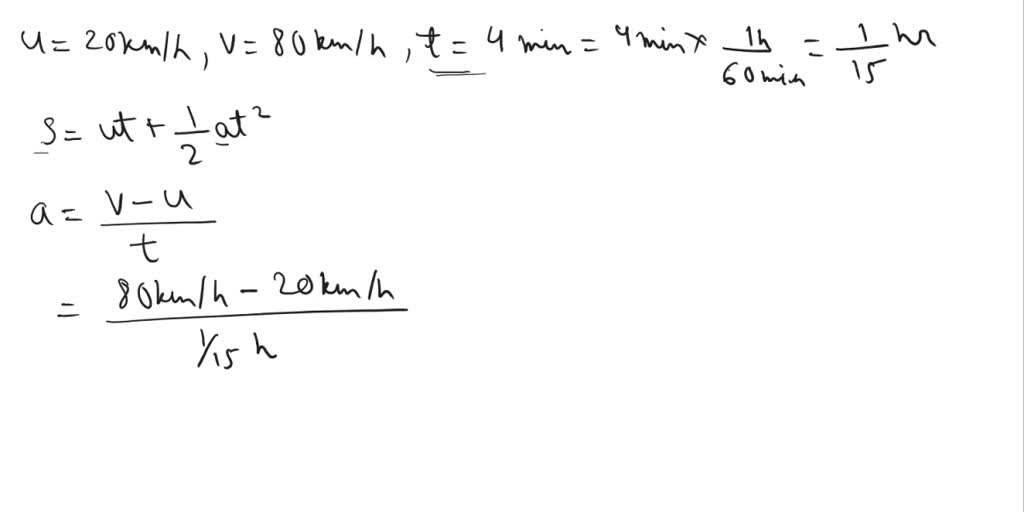 u = 20km/h, v = 80km/h, t = 4 min = 4min × 1h/60min = 1/15 hr
S = ut + 1/2 at²
a = v - u / t
= 80km/h - 20km/h / 1/15 h